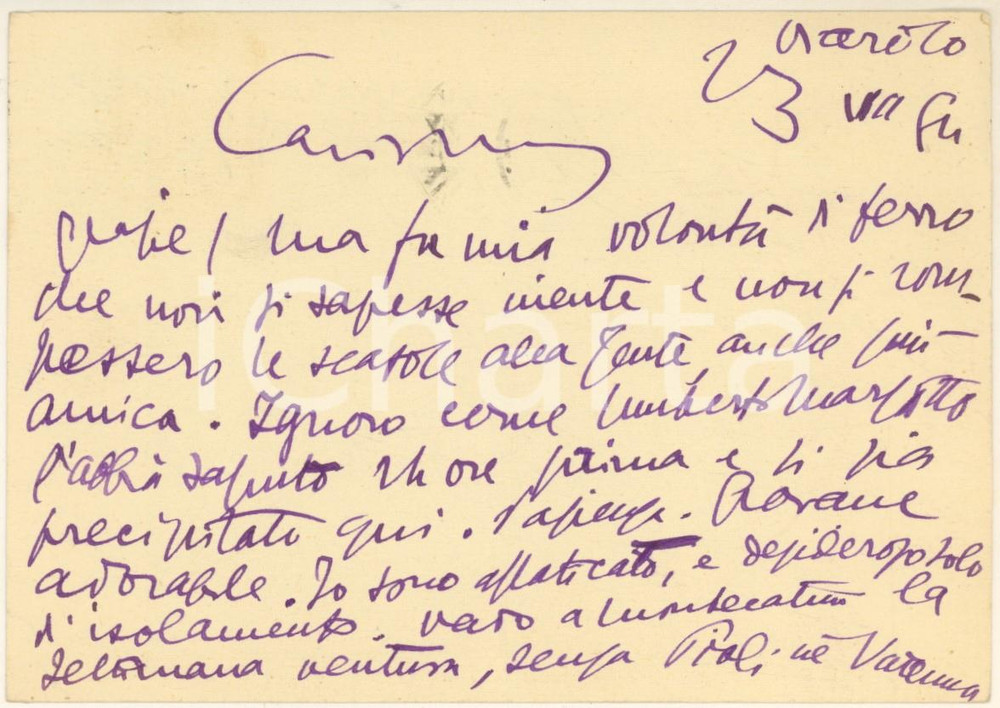 23
Carissimo
grazie! ma fu mia volontà di ferro
che non si sapesse niente e non si rom-
pessero le scatole alla gente, anche più
amica. Ignoro come Umberto Marzotto
l'abbia saputo 24 ore prima e si sia
precipitato qui. Giovane
adorabile. Io sono affaticato, e desideroso solo
d'isolamento. Vado a Montecatini la
settimana ventura, senza Pioli nè Varenna
iCharta